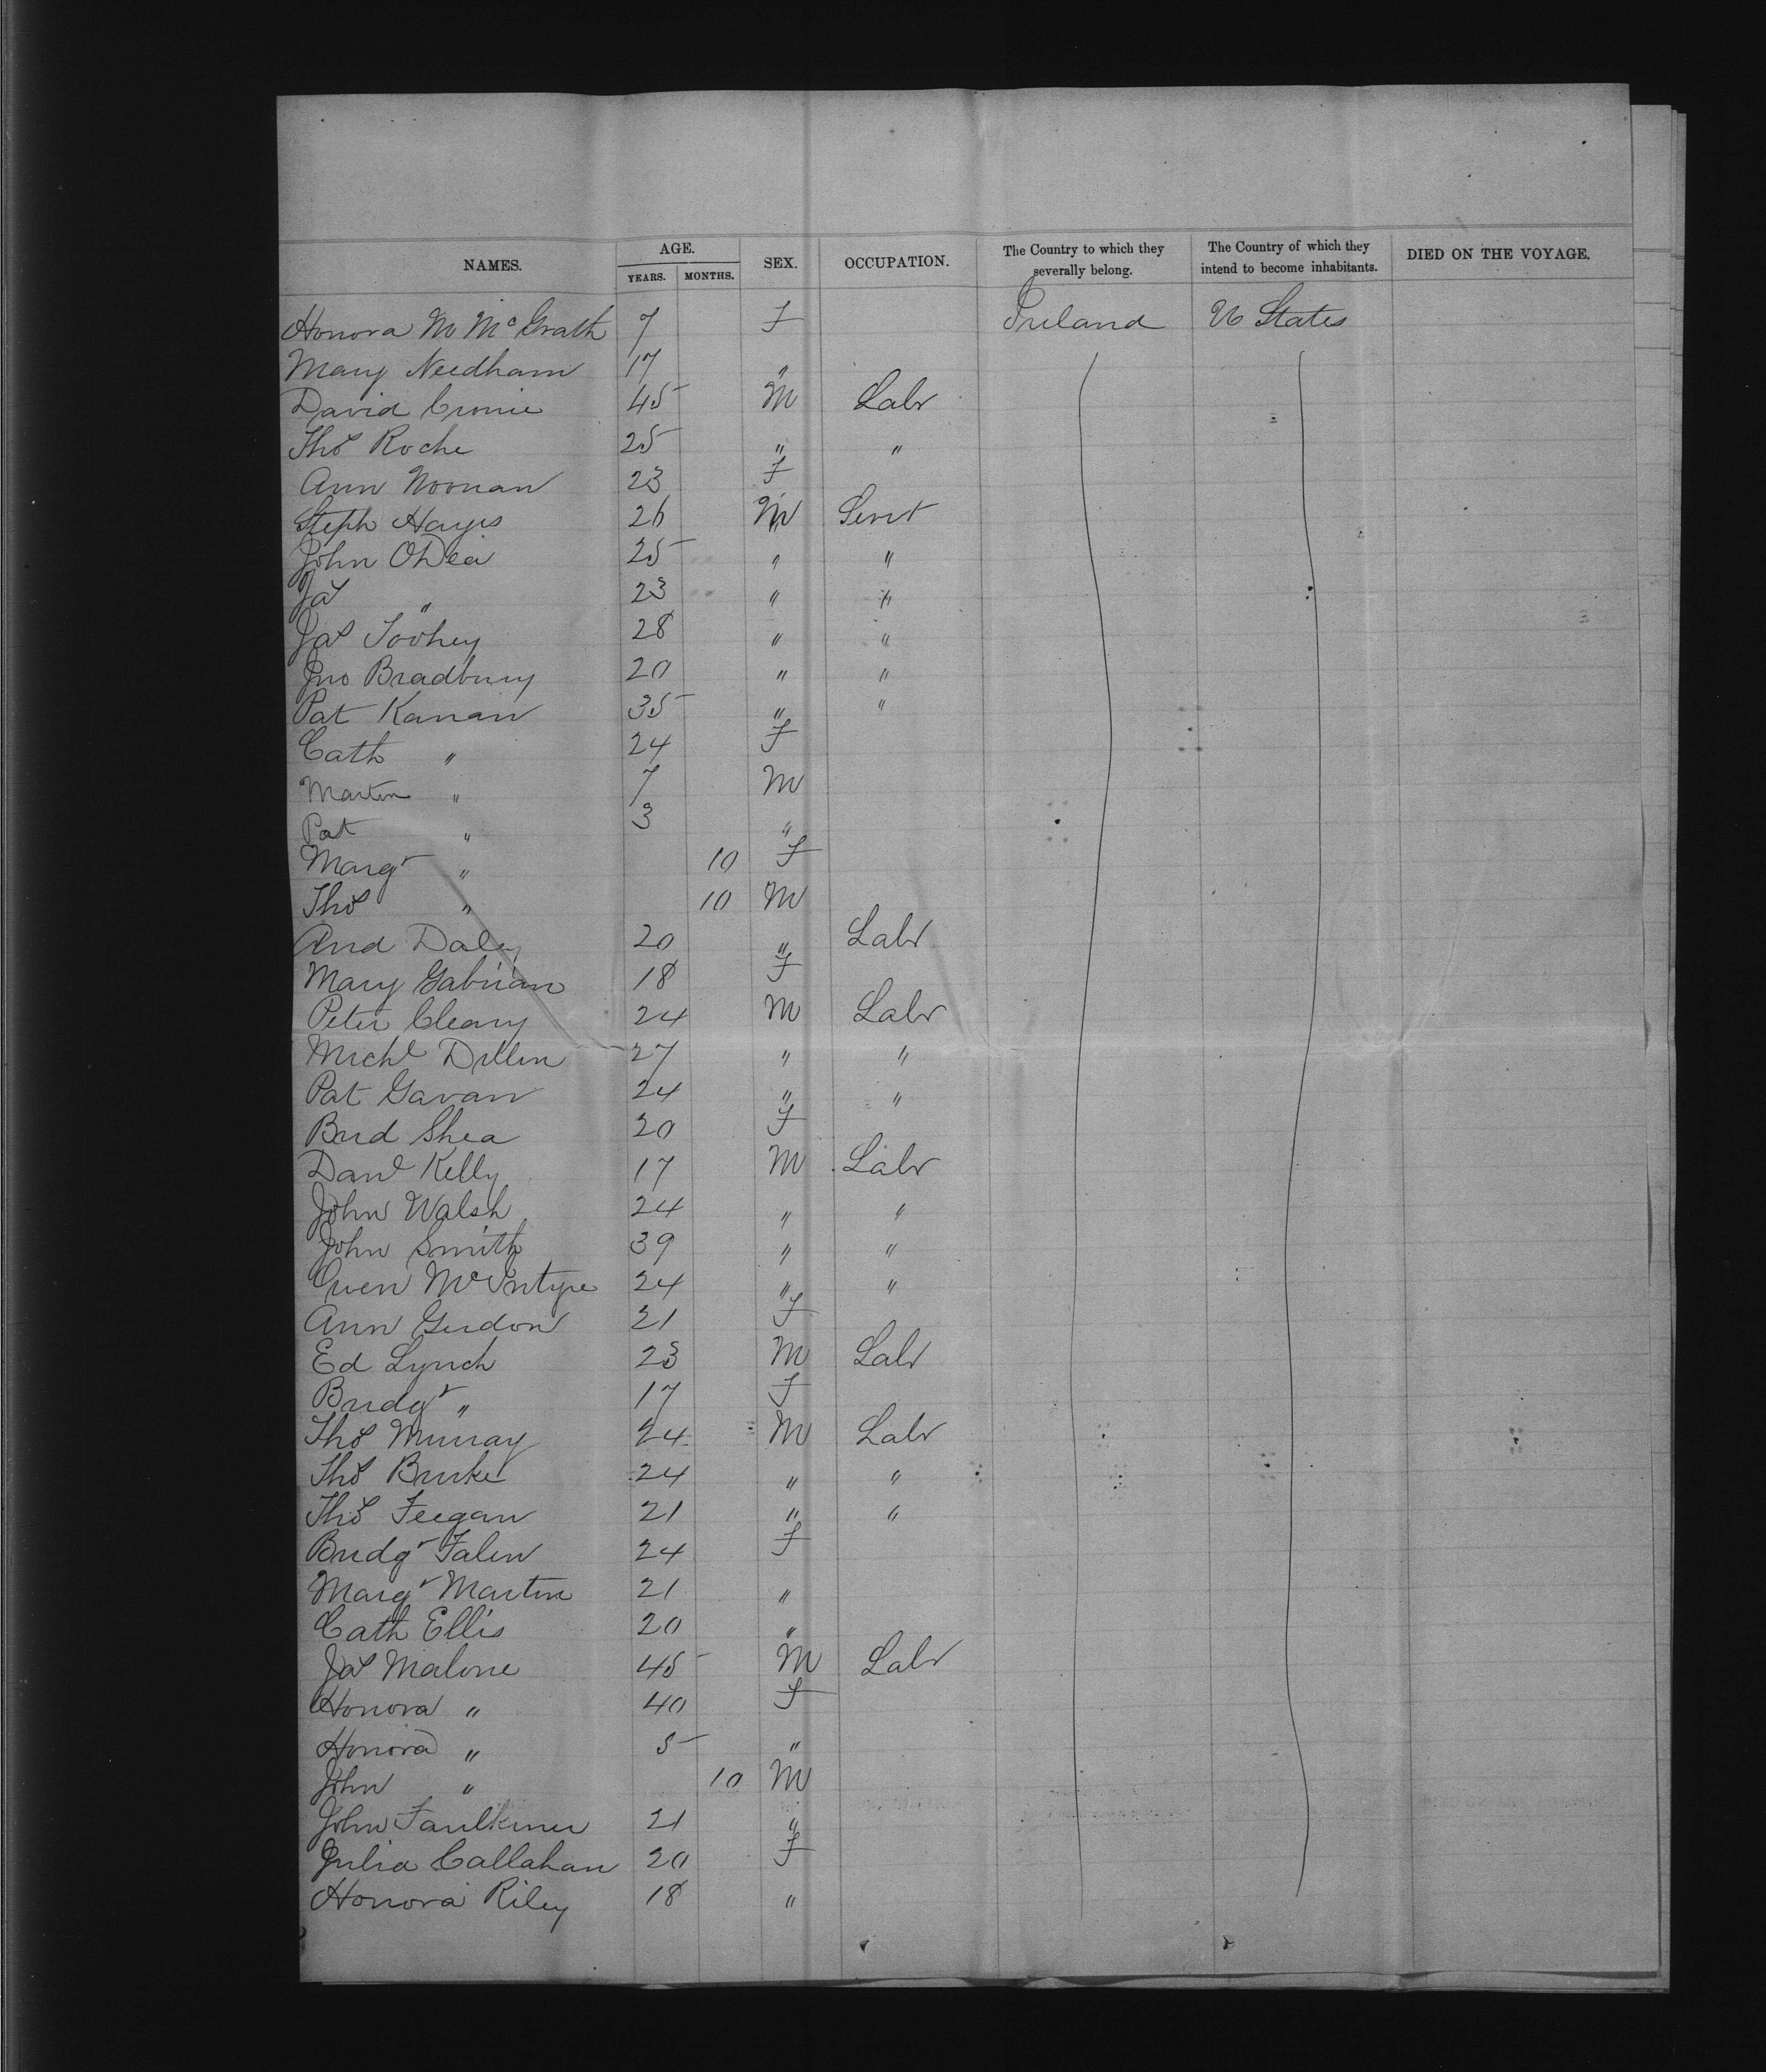 NAMES. AGE. YEARS. MONTHS. SEX. OCCUPATION. The Country to which they severally belong. The Country of which they intend to become inhabitants. DIED ON THE VOYAGE.
Honora M McGrath 7 F Ireland U States
Mary Needham 17 "
David Cronie 45 M Labr
Thos Roche 25 " "
Ann Noonan 23 F
Steph Hayes 26 M Servt
John ODea 25 " "
Jas " 23 " "
Jas Toohey 28 " "
Jno Bradbury 20 " "
Pat Kanan 35 " "
Cath " 24 F
Martin " 7 M
Pat " 3 "
Margt " 10 F
Thos " 10 M
And Daley 20 " Labr
Mary Gabrian 18 F
Peter Cleary 24 M Labr
Michl Dillin 27 " "
Pat Gavan 24 " "
Brid Shea 20 F
Danl Kelly 17 M Labr
John Walsh 24 " "
John Smith 39 " "
Owen McIntyre 24 " "
Ann Gerdon 21 F
Ed Lynch 23 M Labr
Bridgt " 17 F
Thos Murray 24 M Labr
Thos Burke 24 " "
Thos Feegan 21 " "
Bridgt Falen 24 F
Margt Martin 21 "
Cath Ellis 20 "
Jas Malone 45 M Labr
Honora " 40 F
Honora " 5 "
John " 10 M
John Faulkner 21 "
Julia Callahan 20 F
Honora Riley 18 "